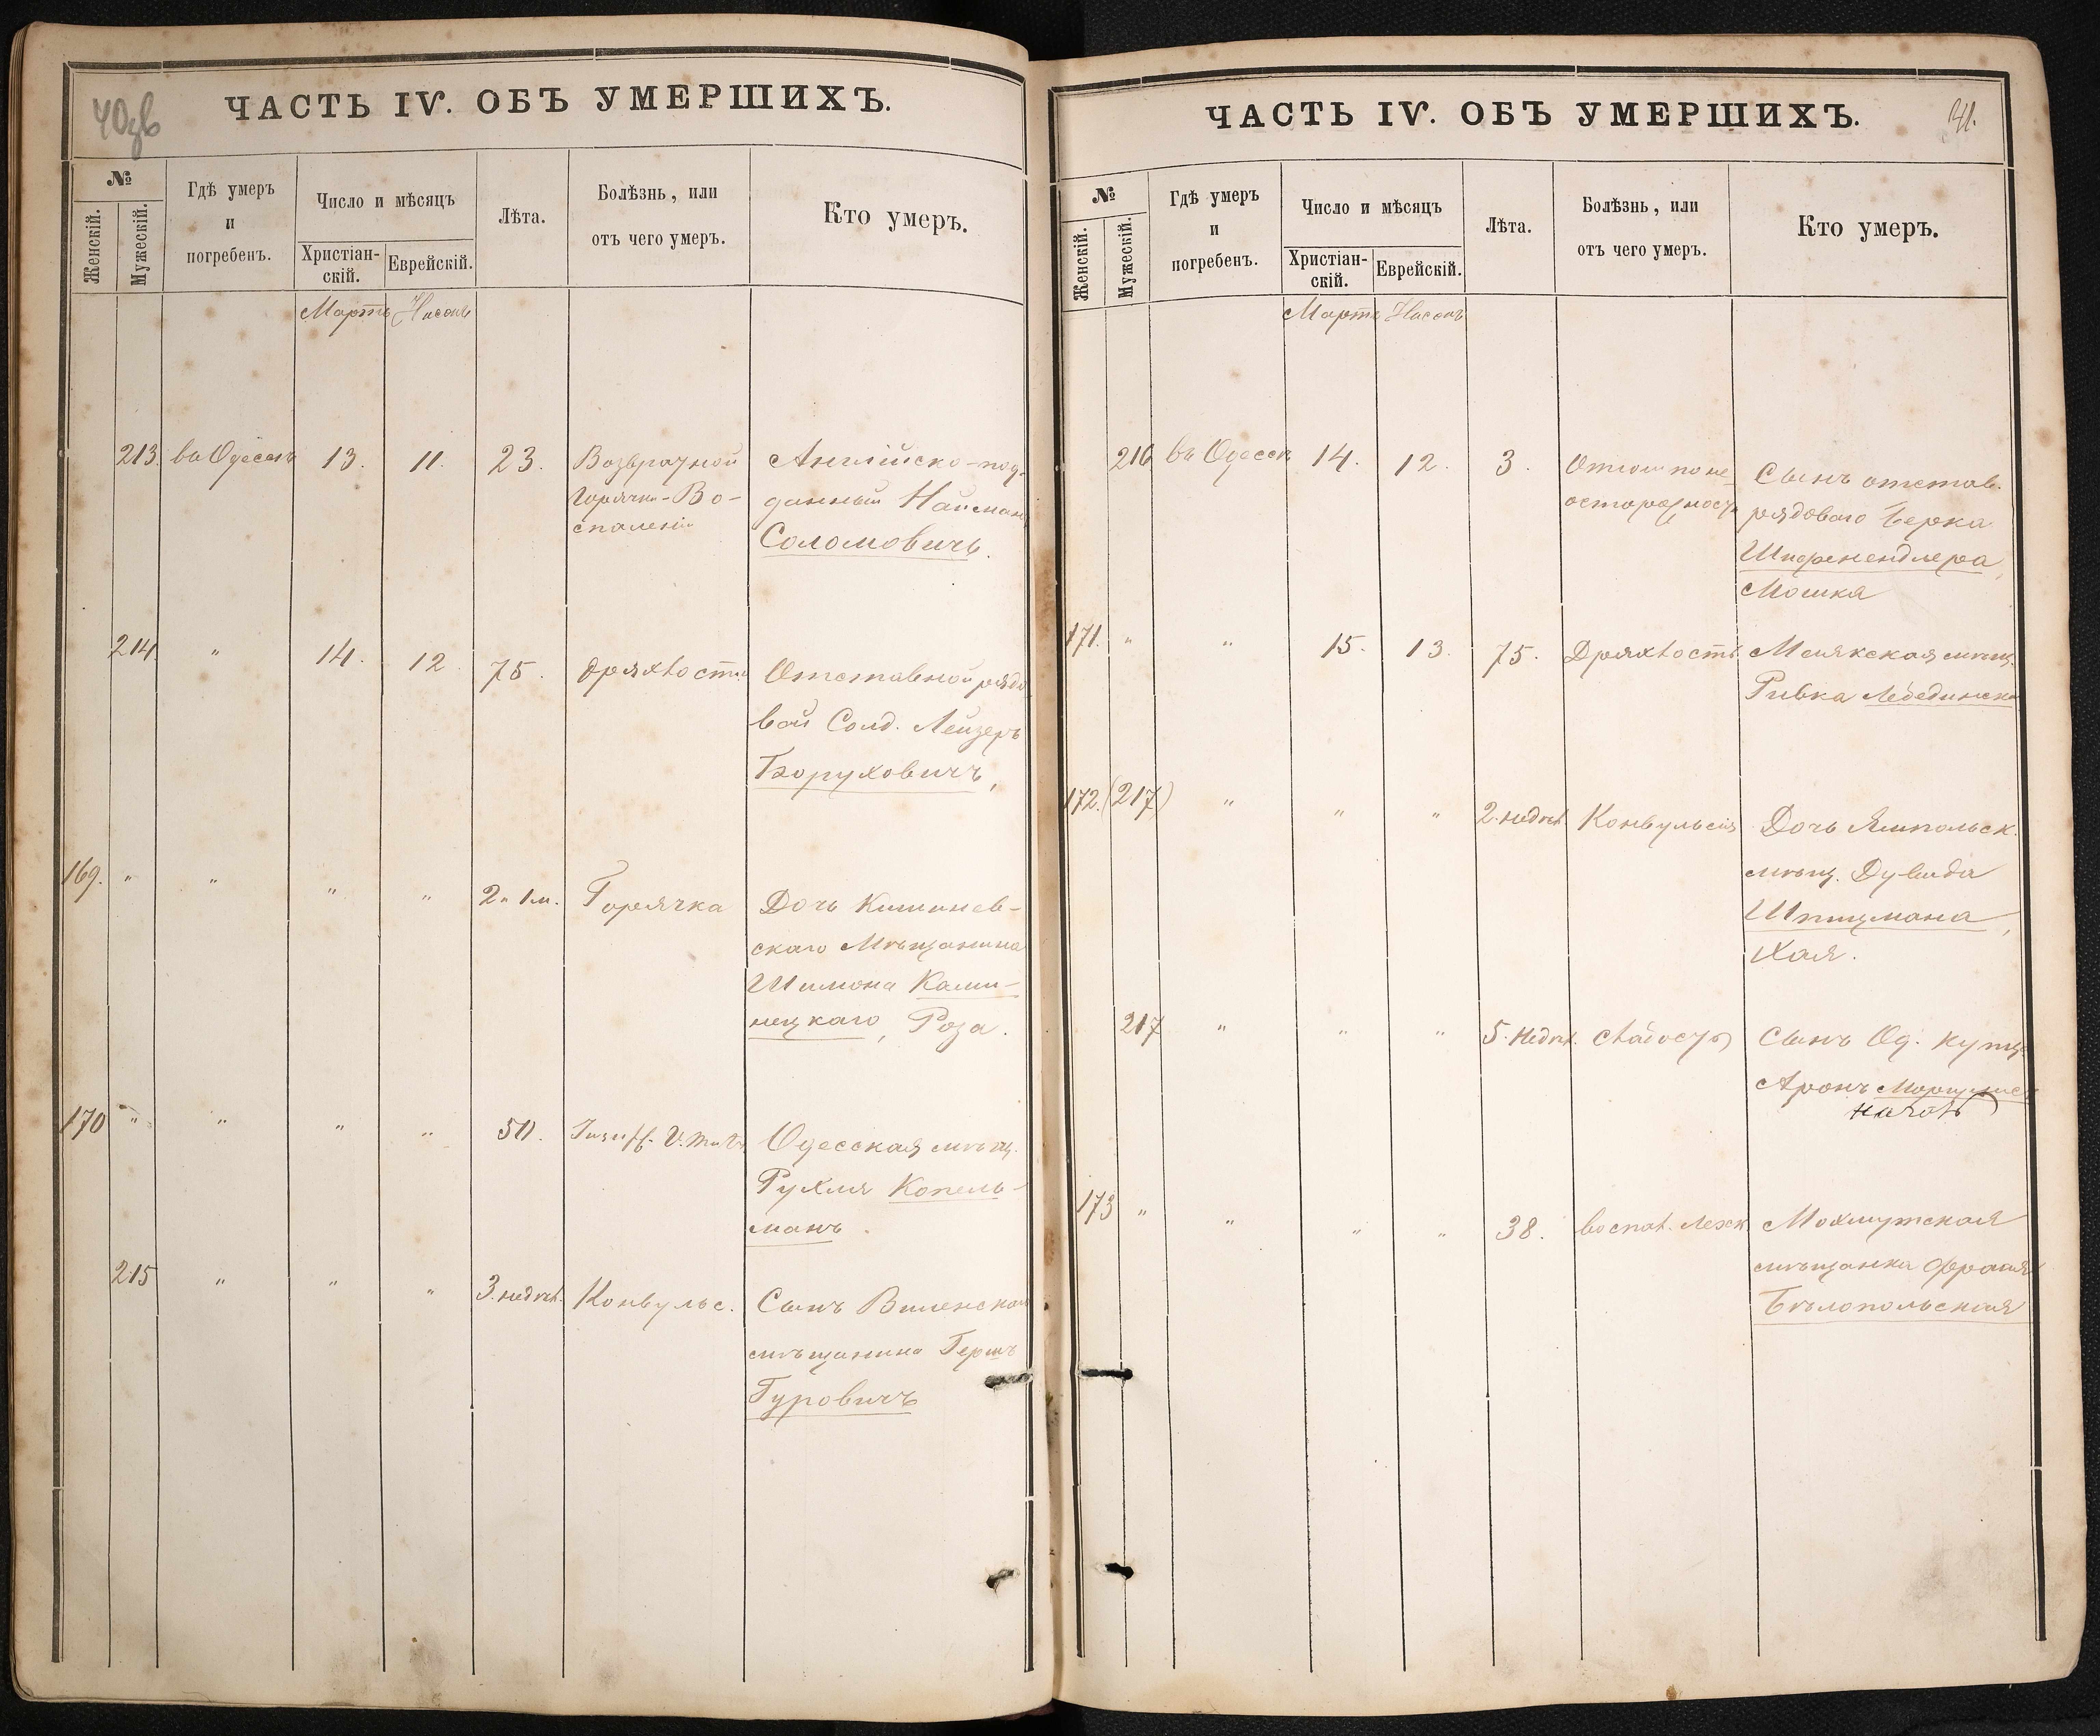 40зв
ЧАСТЬ IV. ОБЪ УМЕРШИХЪ.
№
Женскій.
Мужескій.
Гдѣ умеръ
и
погребенъ.
Число и мѣсяцъ
Христіан-
скій.
Еврейскій.
Лѣта.
Болѣзнь, или
отъ чего умеръ.
Кто умеръ.
Мартъ Нисонъ
213. въ Одессѣ 13. 11. 23. Возвратной Англійско-под-
горячки-Во- данный Найман
спаленія Соломовичъ.
214. " 14. 12. 75. Дряхлость Отставной рядо
вой Солд. Лейзеръ
Боруховичъ,
169. " " " " 2 " 1 м. Горячка Дочь Кишинев-
скаго Мѣщанина
Шимона Ками-
нецкаго, Роза.
170 " " " " 50. Insuff. V. Одесская мѣщ.
Рухля Копель-
манъ.
215 " " " 3. недѣл. Конвульс. Сынъ Виленскаго
мѣщанина Гершъ
Гуровичъ
41.
ЧАСТЬ IV. ОБЪ УМЕРШИХЪ.
№
Женскій.
Мужескій.
Гдѣ умеръ
и
погребенъ.
Число и мѣсяцъ
Христіан-
скій.
Еврейскій.
Лѣта.
Болѣзнь, или
отъ чего умеръ.
Кто умеръ.
Мартъ Нисонъ
216 въ Одессѣ 14. 12. 3. по не- Сынъ отстав.
осторожност рядоваго Берка
Шифенендлера,
Мошка
171. " " 15. 13. 75. Дряхлость мѣщ.
Ривка Лебединска
172. (217) " " " 2. недѣл. Конвульсія Дочь Ямпольск.
мѣщ. Дувида
Шпицмана,
Хая.
217 " " " 5. недѣл. слабость Сынъ Од. купца
Аронъ Моргулисъ
173 " " " " 38. воспал. легк.
мѣщанка Фрома
Бѣлопольская